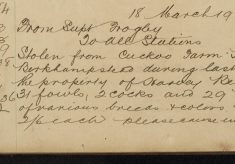 18 March 19
From Supt Frogley
To all Stations
Stolen from Cuckoo Farm
Berkhampstead during last
the property of
31 fowls, 2 cocks and 29
of various breeds & colors.
2/- each please cause